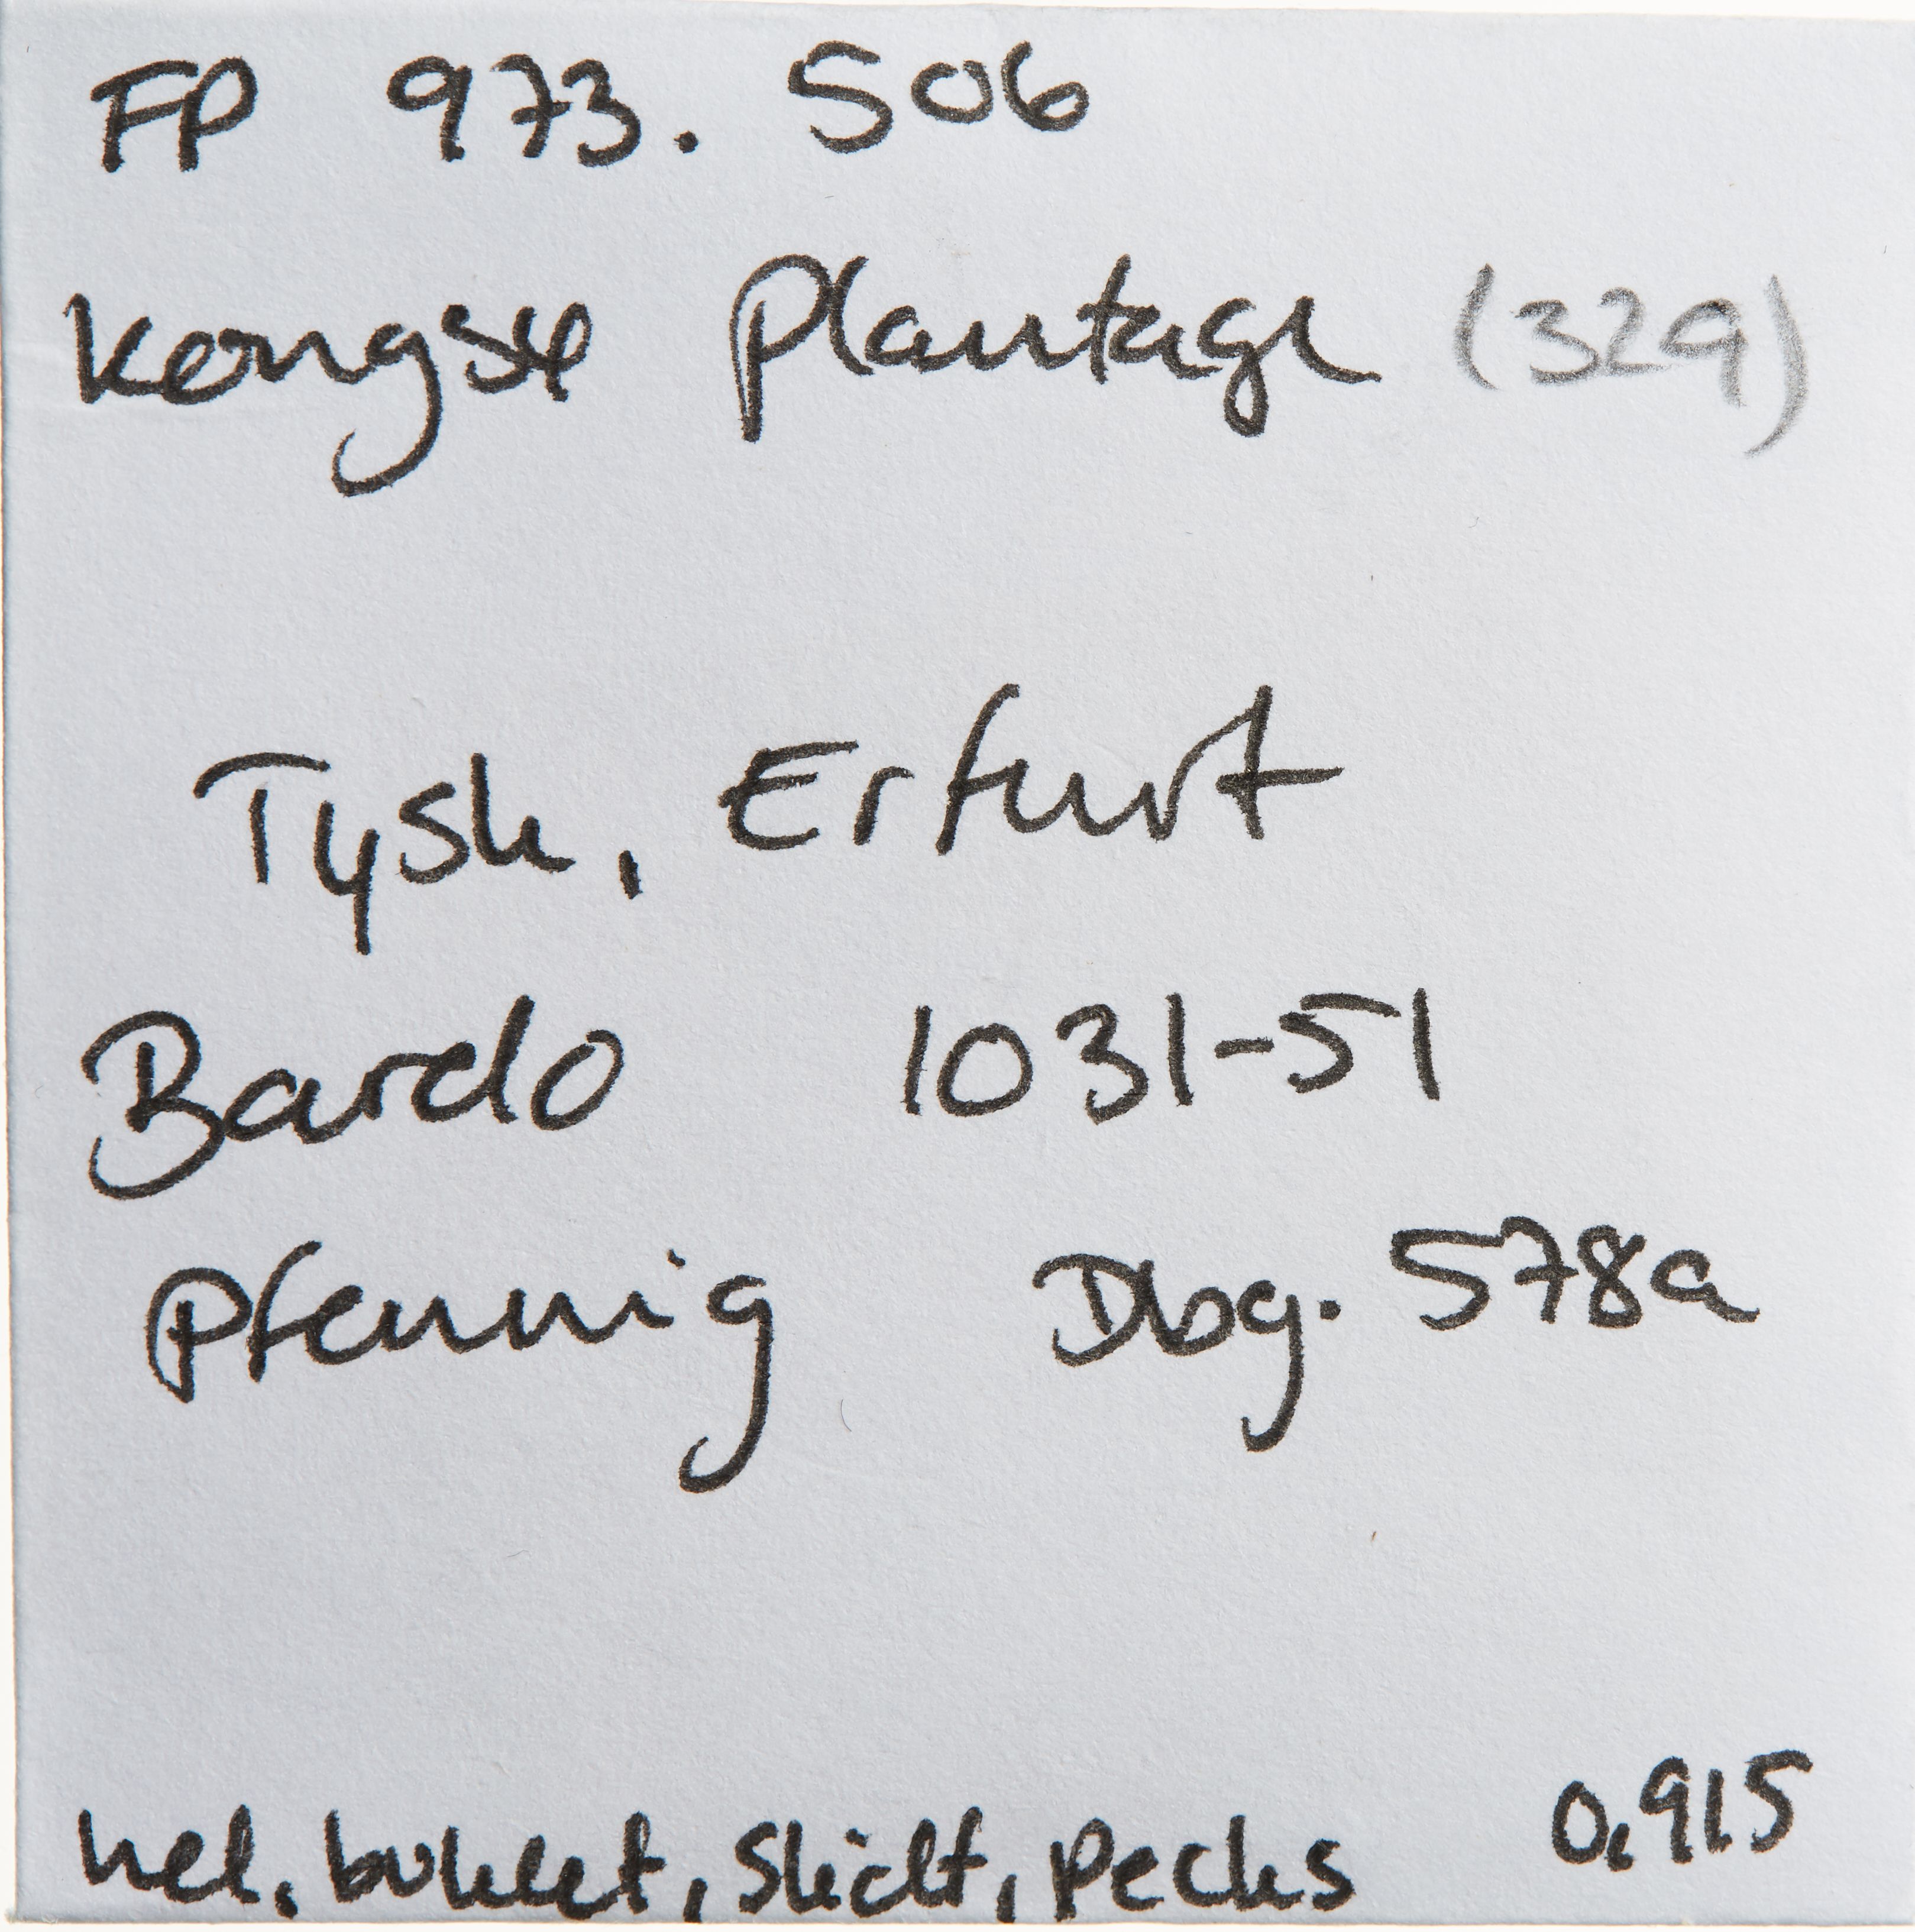 FP 973. 506
Kongsø Plantage (329)
Tysk, Erfurt
Bardo 1031-51
Pfennig Dbg. 578a
hel, bukket, slidt, pecks 0,915